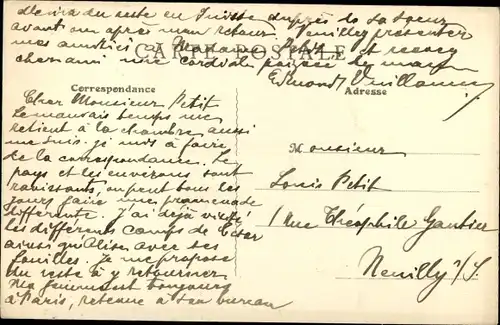 CARTE POSTALE
Correspondance
Cher Monsieur Petit
Le mauvais temps me
retient à la chambre aussi
me suis-je mis à faire
de la correspondance. Le
pays et les environs sont
ravissants, on peut tous les
jours faire une promenade
différente. J'ai déjà visité
les différents camps de César
ainsi qu'Alise avec ses
fouilles. Je me propose
du reste d'y retourner
Ma femme est toujours
à Paris, retenue à son bureau
du reste en Suisse auprès de sa soeur
avant ou après mon retour. Veuillez présenter
mes amitiés à Madame Petit et recevez
cher ami une cordiale poignée de main
Edmond Vuillaume
Adresse
Monsieur
Louis Petit
1 Rue Théophile Gautier
Neuilly s/S.